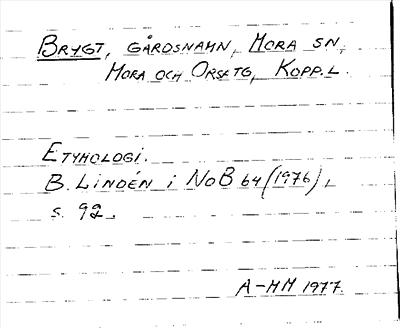 BRYGT, GÅRDSNAMN, MORA SN,
MORA OCH ORSA TG, KOPP.L.
ETYMOLOGI.
B. LINDÉN i NoB 64 (1976),
s. 92.
A-MM 1977.